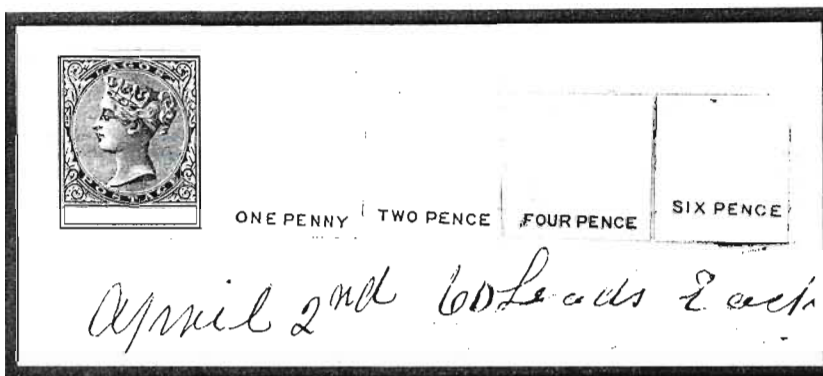 LAGOS
POSTAGE
ONE PENNY TWO PENCE FOUR PENCE SIX PENCE
April 2nd 60 Leads Each